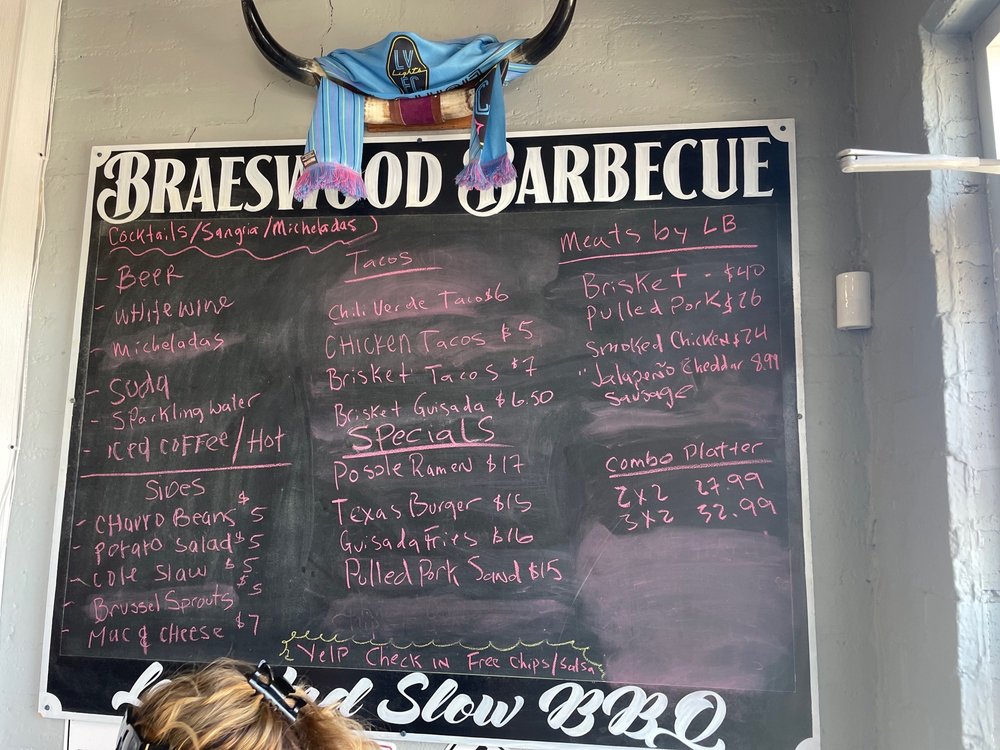 LV
Lights
FC
BRAESWOOD BARBECUE
Cocktails/Sangria/Micheladas
- Beer
- white wine
- Micheladas
- Soda
- Sparkling water
- Iced coffee/Hot
Sides
- Charro Beans $5
- Potato Salad $5
- Cole Slaw $5
- Brussel Sprouts $5
- Mac & Cheese $7
Tacos
Chili Verde Taco $6
Chicken Tacos $5
Brisket Tacos $7
Brisket Guisada $6.50
Specials
Posole Ramen $17
Texas Burger $15
Guisada Fries $16
Pulled Pork Sand $15
Meats by LB
Brisket - $40
Pulled Pork $26
Smoked Chicken $24
"Jalapeño Cheddar 8.99
Sausage
Combo Platter
2x2 27.99
3x2 32.99
Yelp Check in Free Chips/Salsa
Slow BBQ